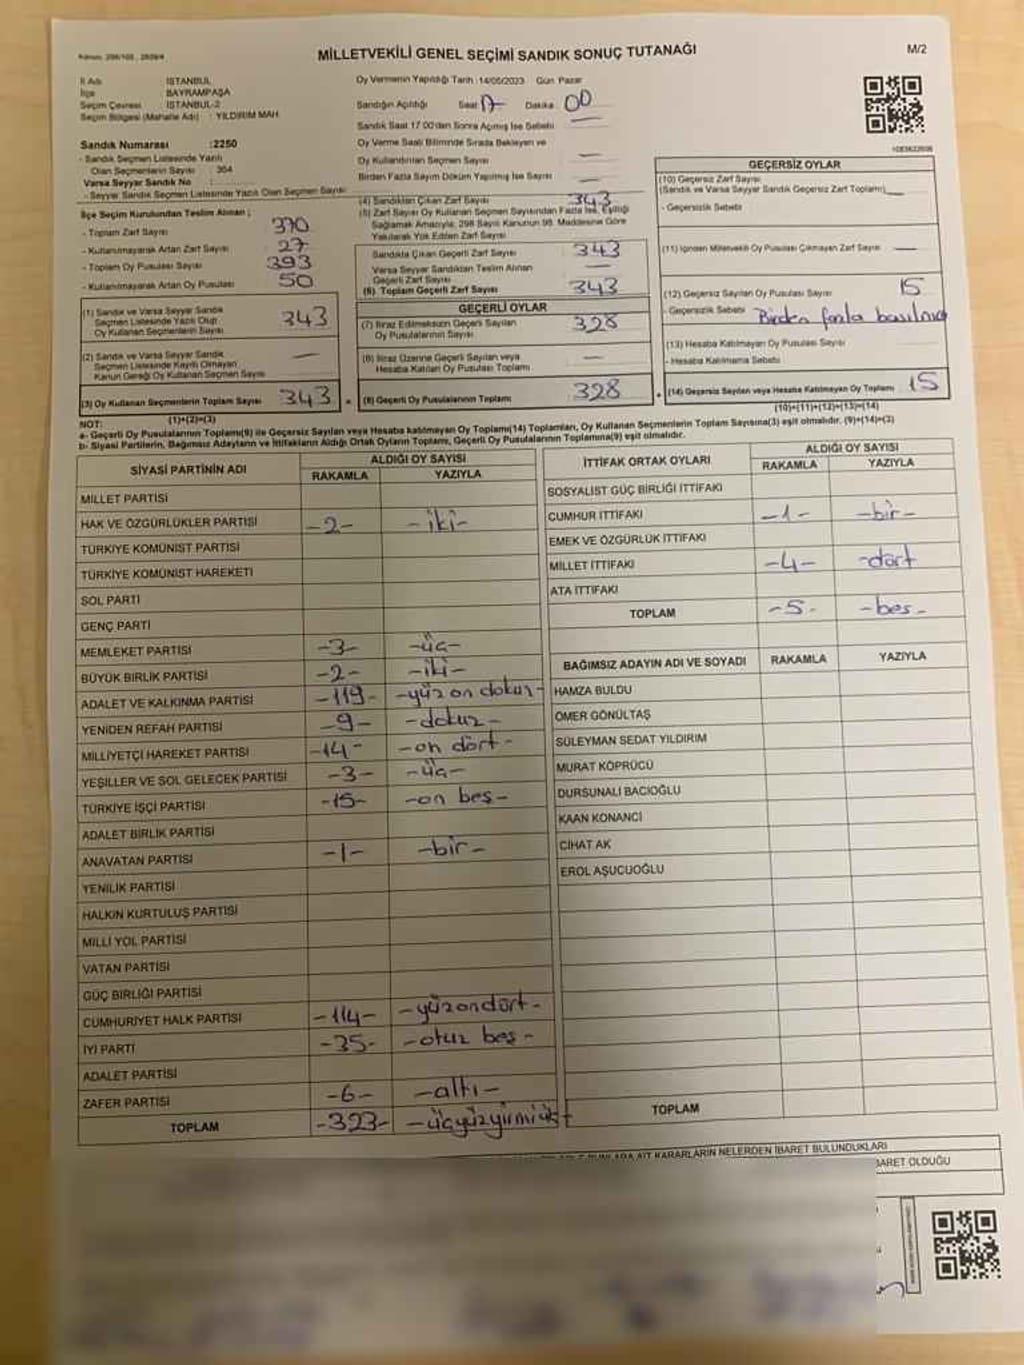 MİLLETVEKİLİ GENEL SEÇİMİ SANDIK SONUÇ TUTANAĞI
M/2
İl Adı : İSTANBUL
İlçe : BAYRAMPAŞA
Seçim Çevresi : İSTANBUL-2
Seçim Bölgesi (Mahalle Adı) : YILDIRIM MAH.
Sandık Numarası :2250
- Sandık Seçmen Listesinde Yazılı
Olan Seçmenlerin Sayısı : 364
Varsa Seyyar Sandık No :
- Seyyar Sandık Seçmen Listesinde Yazılı Olan Seçmen Sayısı
Oy Vermenin Yapıldığı Tarih :14/05/2023 Gün Pazar
Sandığın Açıldığı Saat 17 Dakika : 00
Sandık Saat 17:00'den Sonra Açılmış İse Sebebi
Oy Verme Saati Bitiminde Sırada Bekleyen ve
Oy Kullandırılan Seçmen Sayısı —
Birden Fazla Sayım Döküm Yapılmış İse Sayısı —
İlçe Seçim Kurulundan Teslim Alınan ;
- Toplam Zarf Sayısı 370
- Kullanılmayarak Artan Zarf Sayısı 27
- Toplam Oy Pusulası Sayısı 393
- Kullanılmayarak Artan Oy Pusulası 50
(1) Sandık ve Varsa Seyyar Sandık
Seçmen Listesinde Yazılı Olup
Oy Kullanan Seçmenlerin Sayısı 343
(2) Sandık ve Varsa Seyyar Sandık
Seçmen Listesinde Kayıtlı Olmayan
Kanun Gereği Oy Kullanan Seçmen Sayısı —
(3) Oy Kullanan Seçmenlerin Toplam Sayısı 343
(1)+(2)=(3)
(4) Sandıktan Çıkan Zarf Sayısı 343
(5) Zarf Sayısı Oy Kullanan Seçmen Sayısından Fazla İse, Eşitliği
Sağlamak Amacıyla, 298 Sayılı Kanunun 98. Maddesine Göre
Yakılarak Yok Edilen Zarf Sayısı
Sandıkta Çıkan Geçerli Zarf Sayısı 343
Varsa Seyyar Sandıktan Teslim Alınan
Geçerli Zarf Sayısı —
(6). Toplam Geçerli Zarf Sayısı 343
GEÇERLİ OYLAR
(7) İtiraz Edilmeksizin Geçerli Sayılan
Oy Pusulalarının Sayısı 328
(8) İtiraz Üzerine Geçerli Sayılan veya
Hesaba Katılan Oy Pusulası Toplamı —
(9) Geçerli Oy Pusulalarının Toplamı 328
GEÇERSİZ OYLAR
(10) Geçersiz Zarf Sayısı
(Sandık ve Varsa Seyyar Sandık Geçersiz Zarf Toplamı)
- Geçersizlik Sebebi
(11) İçinden Milletvekili Oy Pusulası Çıkmayan Zarf Sayısı —
(12) Geçersiz Sayılan Oy Pusulası Sayısı 15
- Geçersizlik Sebebi Birden fazla
(13) Hesaba Katılmayan Oy Pusulası Sayısı
- Hesaba Katılmama Sebebi
(14) Geçersiz Sayılan veya Hesaba Katılmayan Oy Toplamı 15
(10)+(11)+(12)+(13)=(14)
NOT:
a- Geçerli Oy Pusulalarının Toplamı(9) ile Geçersiz Sayılan veya Hesaba katılmayan Oy Toplamı(14) Toplamları, Oy Kullanan Seçmenlerin Toplam Sayısına(3) eşit olmalıdır. (9)+(14)=(3)
b- Siyasi Partilerin, Bağımsız Adayların ve İttifakların Aldığı Ortak Oyların Toplamı, Geçerli Oy Pusulalarının Toplamına(9) eşit olmalıdır.
SİYASİ PARTİNİN ADI ALDIĞI OY SAYISI
RAKAMLA YAZIYLA
MİLLET PARTİSİ
HAK VE ÖZGÜRLÜKLER PARTİSİ -2- -iki-
TÜRKİYE KOMÜNİST PARTİSİ
TÜRKİYE KOMÜNİST HAREKETİ
SOL PARTİ
GENÇ PARTİ
MEMLEKET PARTİSİ -3- -üç-
BÜYÜK BİRLİK PARTİSİ -2- -iki-
ADALET VE KALKINMA PARTİSİ -119- -yüz on dokuz-
YENİDEN REFAH PARTİSİ -9- -dokuz-
MİLLİYETÇİ HAREKET PARTİSİ -14- -on dört-
YEŞİLLER VE SOL GELECEK PARTİSİ -3- -üç-
TÜRKİYE İŞÇİ PARTİSİ -15- -on beş-
ADALET BİRLİK PARTİSİ
ANAVATAN PARTİSİ -1- -bir-
YENİLİK PARTİSİ
HALKIN KURTULUŞ PARTİSİ
MİLLİ YOL PARTİSİ
VATAN PARTİSİ
GÜÇ BİRLİĞİ PARTİSİ
CUMHURİYET HALK PARTİSİ -114- -yüzondört-
İYİ PARTİ -35- -otuz beş-
ADALET PARTİSİ
ZAFER PARTİSİ -6- -altı-
TOPLAM -323- -üçyüzyirmiüç-
İTTİFAK ORTAK OYLARI ALDIĞI OY SAYISI
RAKAMLA YAZIYLA
SOSYALİST GÜÇ BİRLİĞİ İTTİFAKI
CUMHUR İTTİFAKI -1- -bir-
EMEK VE ÖZGÜRLÜK İTTİFAKI
MİLLET İTTİFAKI -4- -dört
ATA İTTİFAKI
TOPLAM -5- -beş-
BAĞIMSIZ ADAYIN ADI VE SOYADI RAKAMLA YAZIYLA
HAMZA BULDU
ÖMER GÖNÜLTAŞ
SÜLEYMAN SEDAT YILDIRIM
MURAT KÖPRÜCÜ
DURSUNALİ BACIOĞLU
KAAN KONANCI
CİHAT AK
EROL AŞUCUOĞLU
TOPLAM
KARARLARIN NELERDEN İBARET BULUNDUKLARI
BARET OLDUĞU